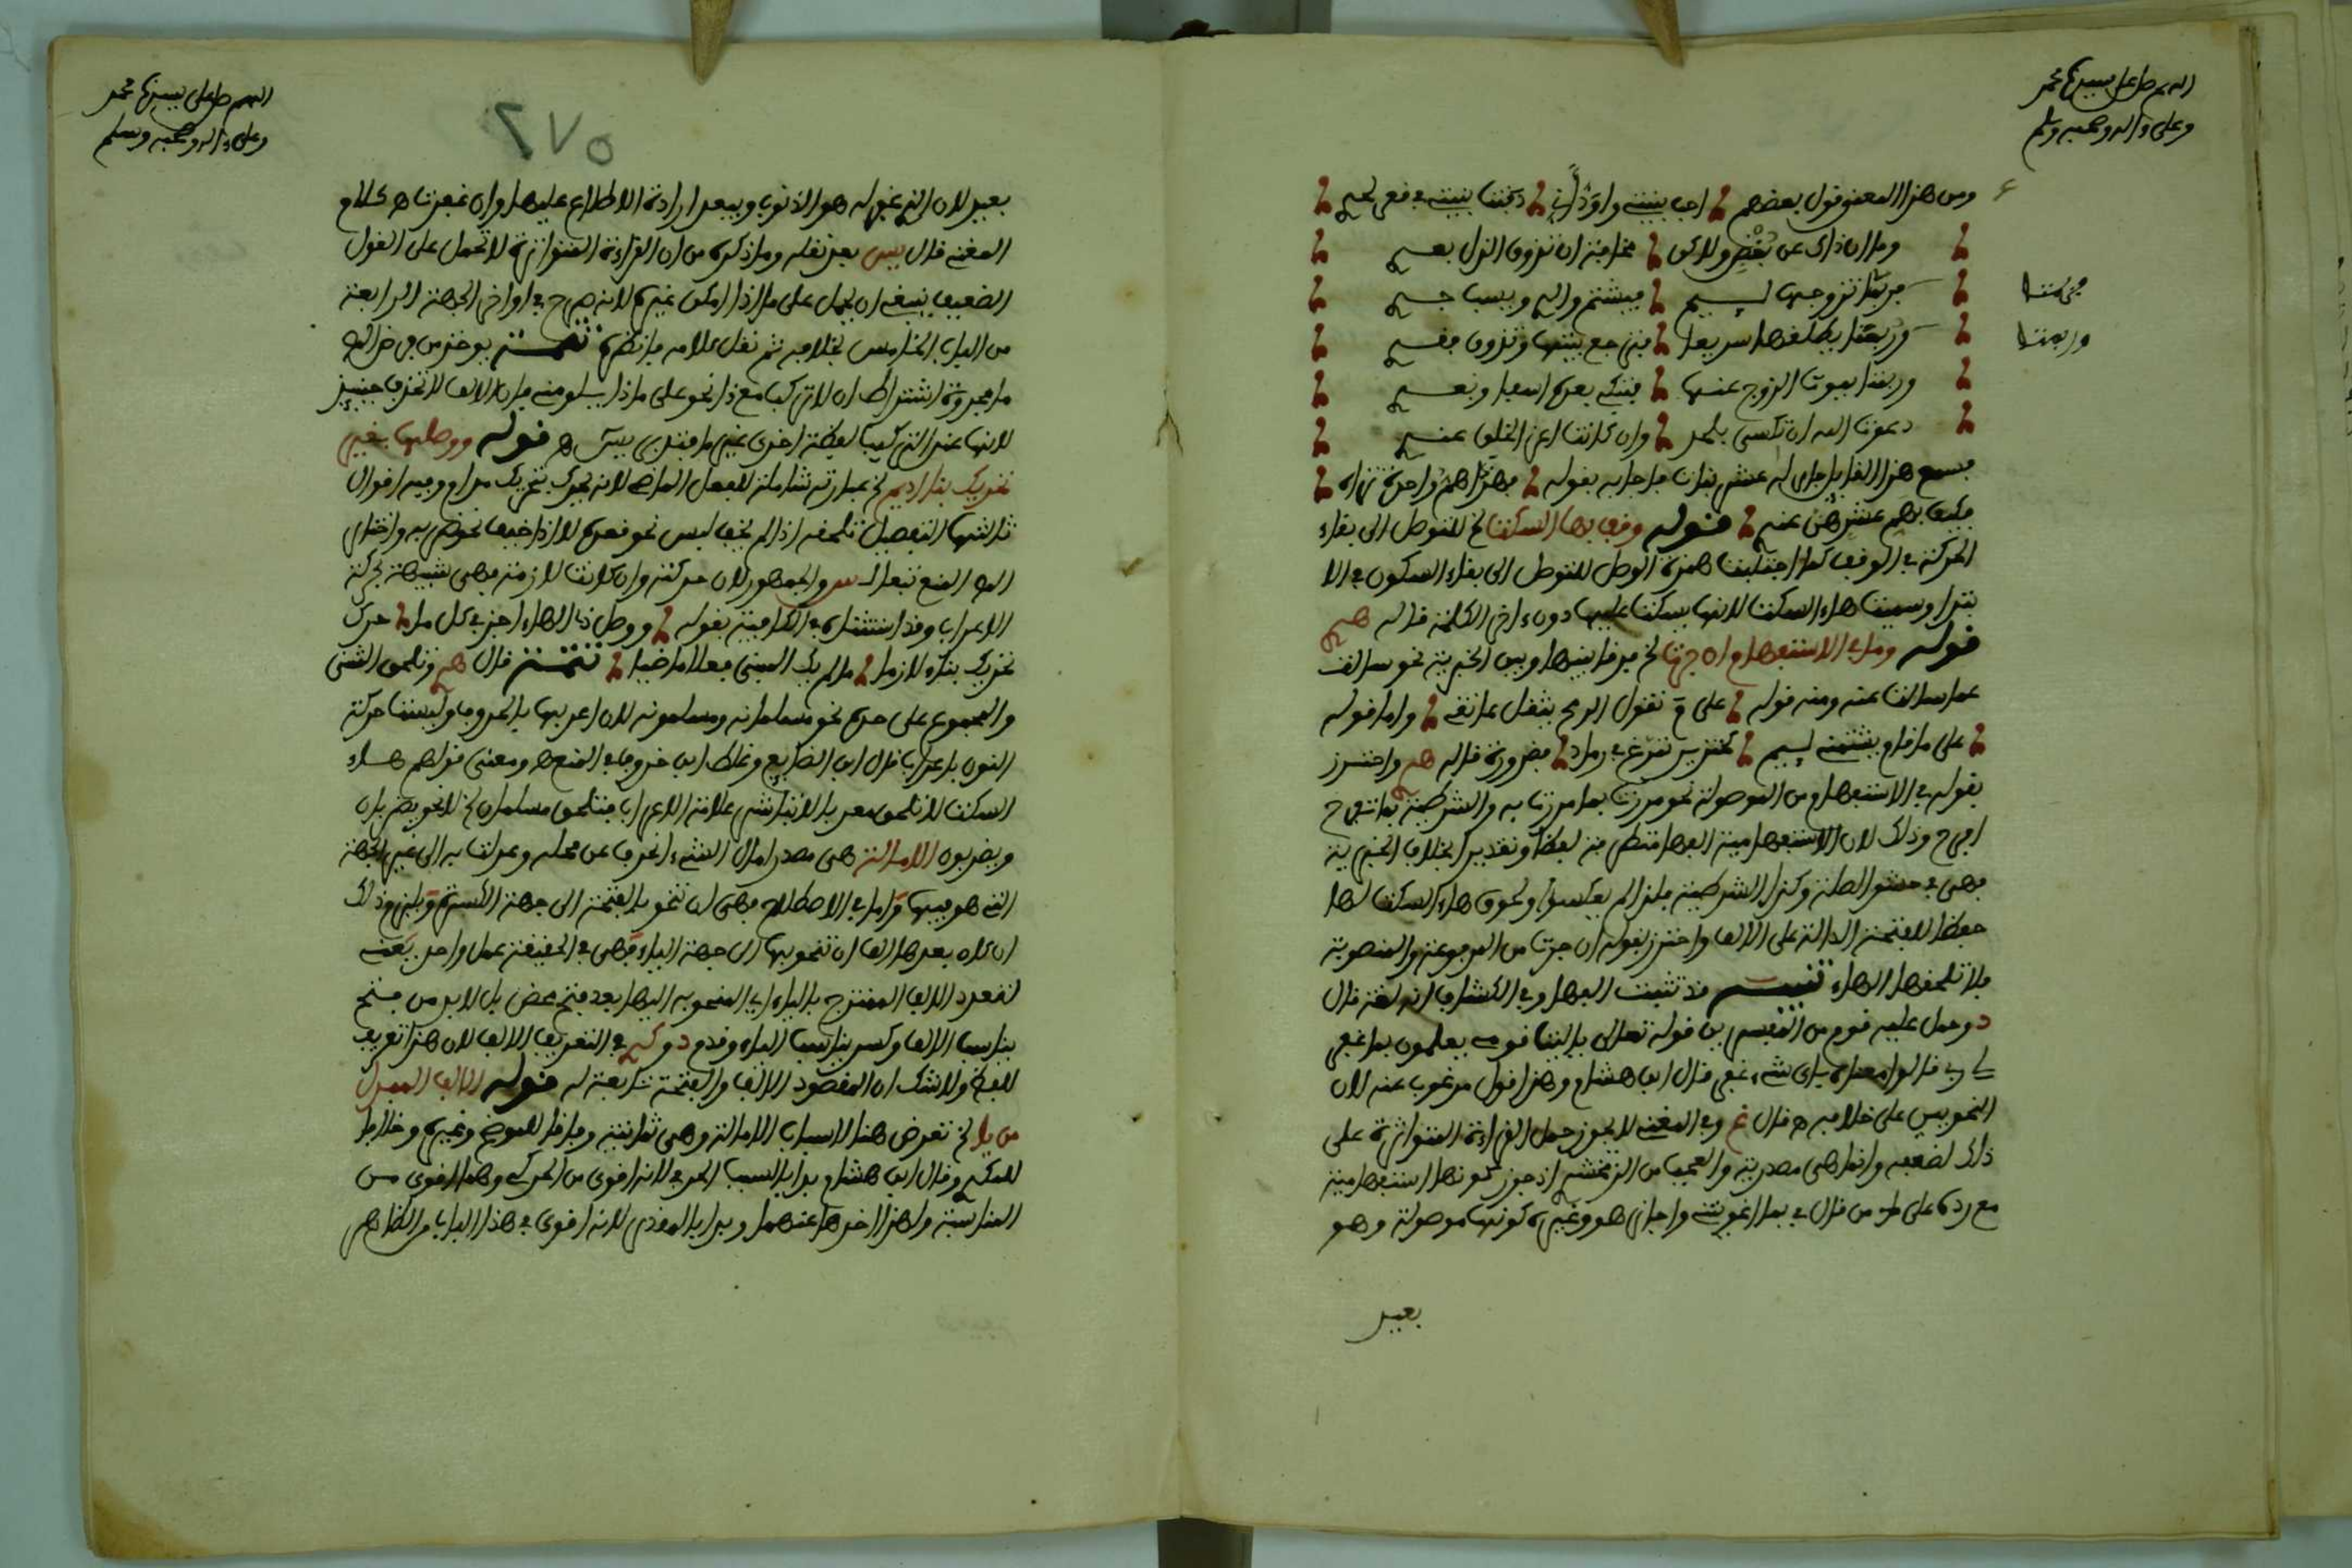 اللهم صل على سيدنا محمد
وعلى ءاله وصحبه وسلم
ومن هذا المعنى قول بعضهم احب بنيتي واود اني دفنت بنيتي في قعر لحد
وما ان ذاك عن بغض ولاكن مخافة ان تذوق الذل بعد
فربتما تزوجها لئيم فيشتم والدي ويسب جد
وربتما يطلقها سريعا فترجع بيتها وتذوق فقد
وربتما يموت الزوج عنها فتبكي بعده اسفا وتعد
دعوت الله ان تكسى بلحد وان كانت اعز الخلق عند
فسمع هذا القايل جار له عشر بنات فاجابه بقوله فهذا هم واحدة تراه
فكيف بهم عشر هن عند قوله وقف بها السكت لخ للتوصل الى بقاء
الحركة في الوقف كما اجتلبت همزة الوصل للتوصل الى بقاء السكون في الا
بتدا وسميت هاء السكت لانها يسكت عليها دون ءاخر الكلمة قاله
قوله وما في الاستفهام ان جرت لخ فرقا بينها وبين الخبرية نحو سالت
عما سالت عنه ومنه قوله على م تقول الرمح يثقل عاتقي واما قوله
على ما قام يشتمني لئيم كخنزير تمرغ في رماد فضرورة قاله واحترز
بقوله في الاستفهام من الموصولة نحو مررت بما مررت به والشرطية بما تفرح
افرح وذلك لان الاستفهامية الفها متطرفة لفظا وتقديرا بخلاف الخبرية
فهي في حشو الصلة وكذا الشرطية فلذا لم يعكسوا ولحوق هاء السكت لها
حفظا للفتحة الدالة على الالف واحترز بقوله ان جرت من المرفوعة والمنصوبة
فلا تلحقها الهاء تنبيه قد تثبت الفها وفي الكشاف انه لغة قال
د وحمل عليه قوم من المفسرين قوله تعالى يا ليت قومي يعلمون بما غفر
لي ربي قالوا معناه باي شيء غفر قال ابن هشام وهذا قول مرغوب عنه لان
النحويين على خلافه ه قال غ وفي المغني لا يجوز حمل القراءة المتواترة على
ذلك لضعفه وانما هي مصدرية والعجب من الزمخشري اذ جوز كونها استفهامية
مع رده على من قال في بما اغويتني واجاز هو وغيره كونها موصولة وهو
بعيد
فربتما
وربتما
اللهم صل على سيدنا محمد
وعلى ءاله وصحبه وسلم
٢٧٥
بعيد لان الذي غفر له هو الذنوب ويبعد ارادة الاطلاع عليها وان غفرت ه كلام
المغني قال يس بعد نقله وما ذكره من ان القراءة المتواترة لا تحمل على القول
الضعيف ينبغي ان يحمل على ما اذا امكن غيره لانه صرح في اواخر الجهة الرابعة
من الباب الخامس بخلافه ثم نقل كلامه فانظره تتمة يوخذ من
ما مجرورة اشتراط ان لا تركب مع ذا نحو على ماذا يلومني فان الالف لا تحذف حينئذ
لانها عند التركيب لفظة اخرى غير ما قبله يس ه قوله ووصلها بغير
تحريك بنا اديم لخ عبارته شاملة للفعل الماضي لانه محرك بتحريك مدام وفيه اقوال
ثالثها التفصيل تلحقه اذا لم يخف لبس نحو قعده لا اذا خيف نحو ضربه واختار
المنع تبعا والجمهور لان حركته وان كانت لازمة فهي شبيهة بحركة
الاعراب وقد استثناه في الكافية بقوله ووصل ذا الهاء اجز في كل ما حرك
تحريك بناء لازما ما لم يك المبني فعلا ماضيا تتمة قال وتلحق المثنى
والمجموع على حده نحو مسلمانه ومسلمونه لان اعرابها بالحروف وليست حركة
النون باعراب قال ابن الضايع وغلط ابن خروف في المنع ه ومعنى قولهم هاء
السكت لا تلحق معربا لا تباشر علامة الاعراب فتلحق مسلمان لخ لا نحو يضربان
ويضربون الامالة هي مصدر امال الشيء انحرف عن محله وعدلت به الى غير الجهة
التي هو فيها واما في الاصطلاح فهي ان تنحو بالفتحة الى جهة الكسرة ويلزم ذلك
ان كان بعدها الف ان تنحو بها الى جهة الياء فهي في الحقيقة عمل واحد بمعنى
لتعدد الالف الممتزج بالياء اي المنحو به اليها بعد فتح محض بل لا بد من فتح
يناسب الالف وكسر يناسب الياء وقدم د في التعريف الالف لان هذا تعريف
للفظ ولا شك ان المقصود الالف والفتحة تابعة له قوله الالف المبدل
من يا لخ تعرض هنا لاسباب الامالة وهي ثمانية وفاقا للموضح وغيره وخلافا
للمكودي وقال ابن هشام بدا بالسبب الحرفي لانه اقوى من الحركي وهما اقوى من
المناسبة ولهذا اخرها عنهما وبدا بالمقدر لانه اقوى في هذا الباب من الظاهر